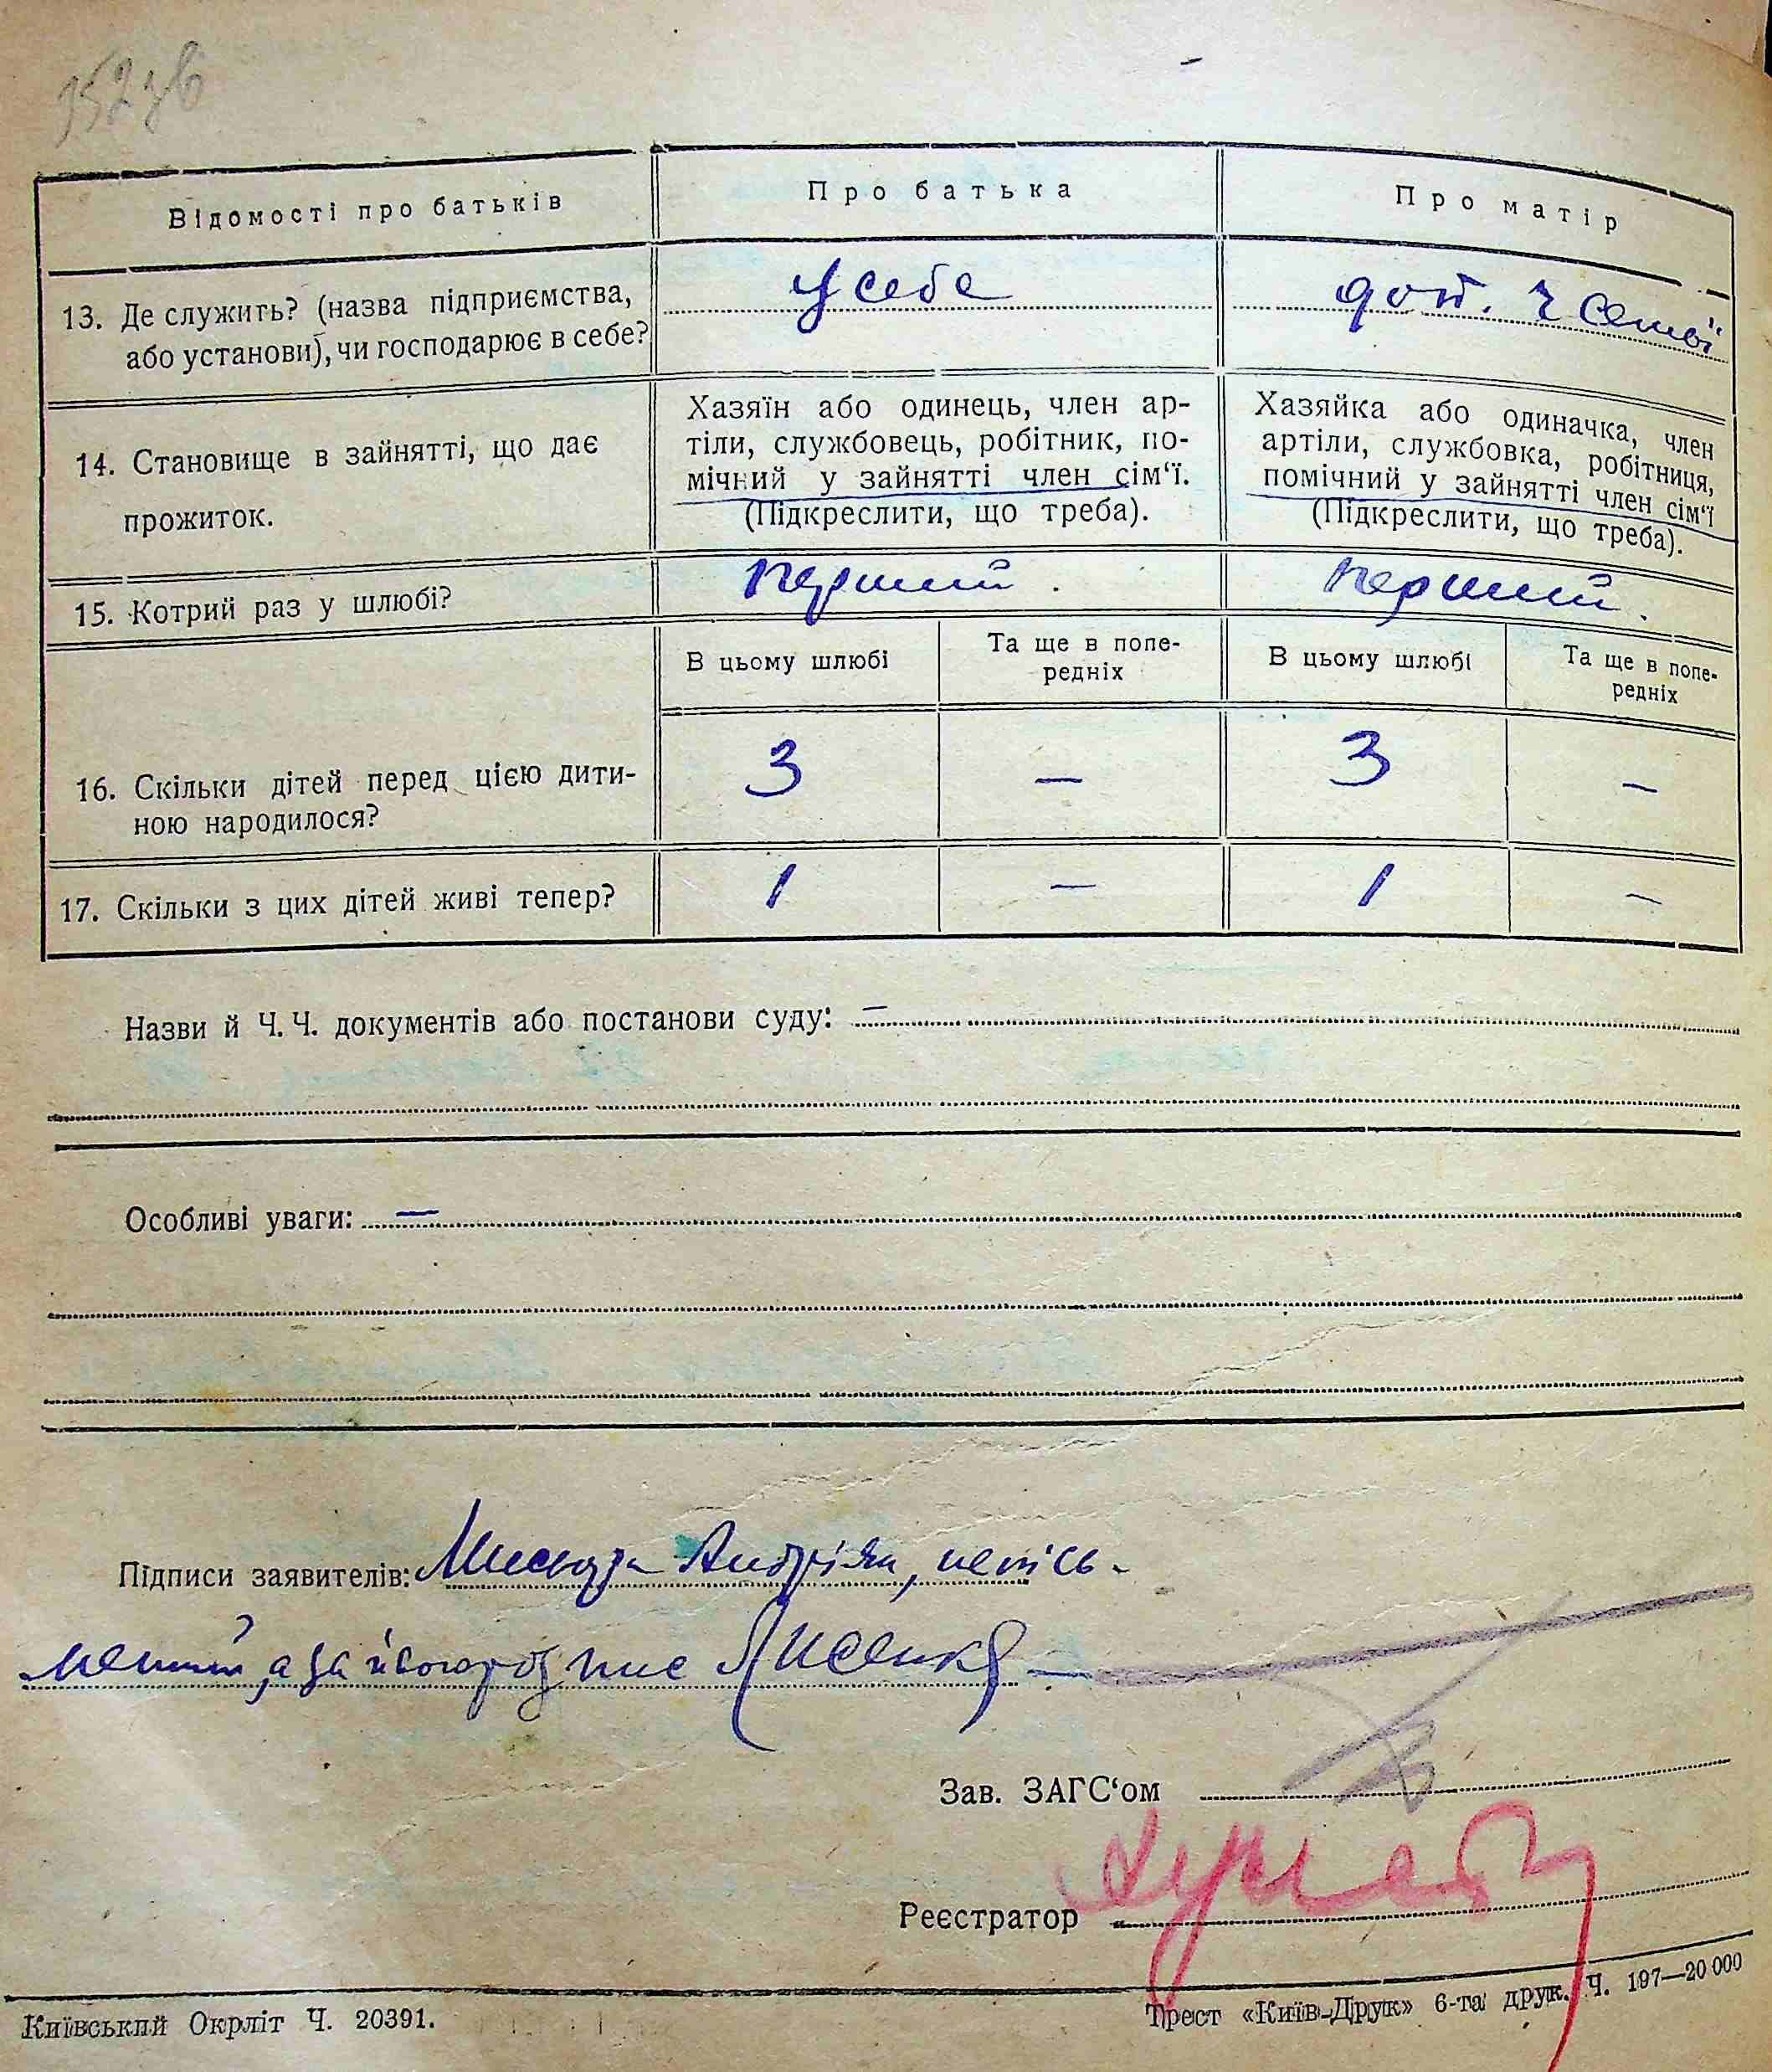 352зв
Відомості про батьків
Про батька
Про матір
13. Де служить? (назва підприємства,
або установи), чи господарює в себе?
У себе
доп. ч семьї
14. Становище в зайнятті, що дає
прожиток.
Хазяїн або одинець, член ар-
тіли, службовець, робітник, по-
мічний у зайнятті член сім‘ї.
(Підкреслити, що треба).
Хазяйка або одиначка, член
артіли, службовка, робітниця,
помічний у зайнятті член сім‘ї
(Підкреслити, що треба).
15. Котрий раз у шлюбі?
Перший.
Перший.
В цьому шлюбі
Та ще в попе-
редніх
В цьому шлюбі
Та ще в попе-
редніх
16. Скільки дітей перед цією дити-
ною народилося?
3
—
3
—
17. Скільки з цих дітей живі тепер?
1
—
1
—
Назви й Ч. Ч. документів або постанови суду: —
Особливі уваги: —
Підписи заявителів: Андріян, непісь-
менний, а за його розпис Лисенко —
Зав. ЗАГС‘ом
Реєстратор
Київський Окрліт Ч. 20391.
Трест «Київ-Друк» 6-та друк. Ч. 197—20 000